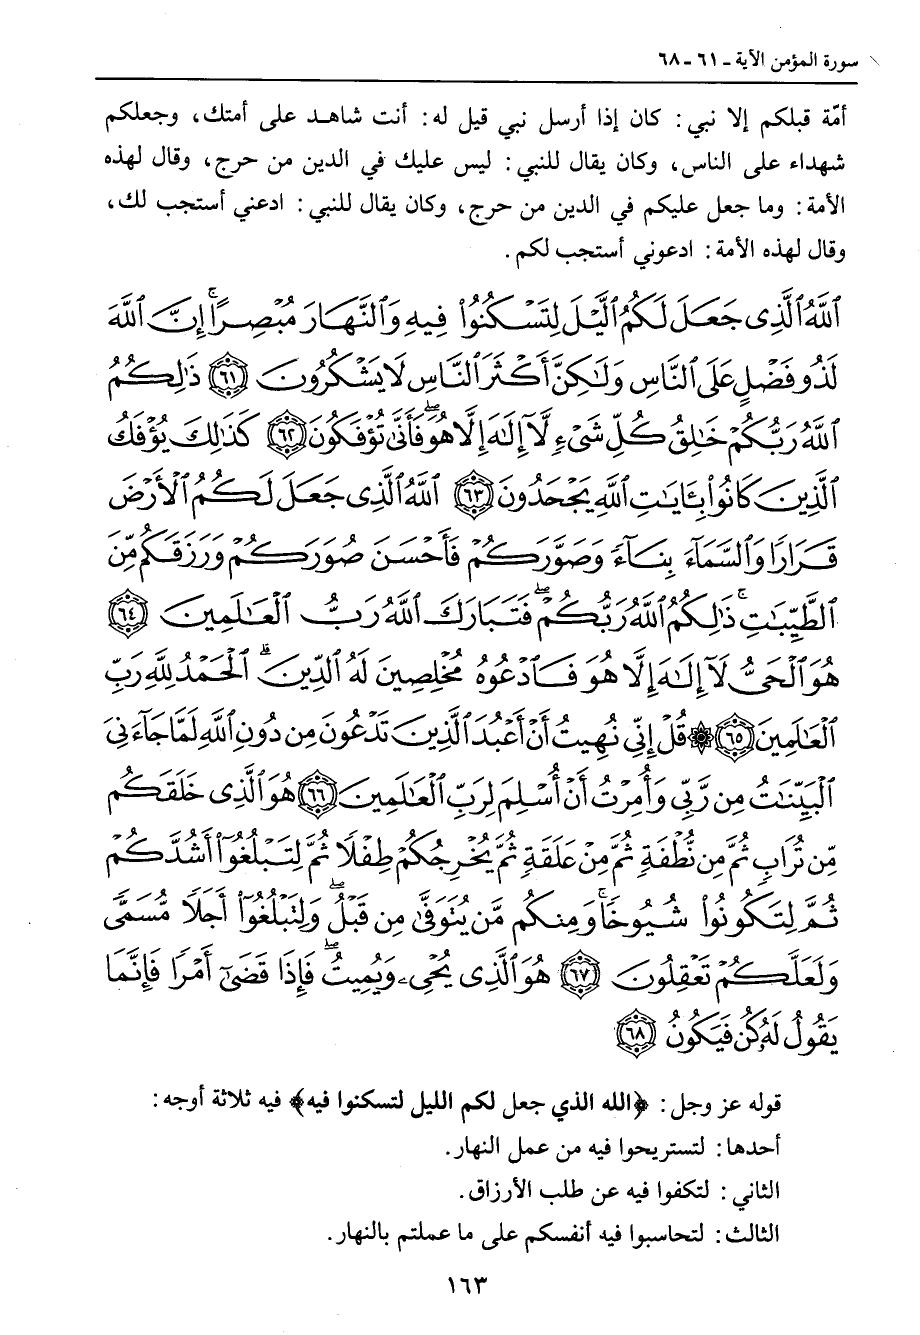 سورة المؤمن الآية - ٦١ - ٦٨
أمّة قبلكم إلا نبي: كان إذا أرسل نبي قيل له: أنت شاهد على أمتك، وجعلكم
شهداء على الناس، وكان يقال للنبي: ليس عليك في الدين من حرج، وقال لهذه
الأمة: وما جعل عليكم في الدين من حرج، وكان يقال للنبي: ادعني أستجب لك،
وقال لهذه الأمة: ادعوني أستجب لكم.
ٱللَّهُ ٱلَّذِى جَعَلَ لَكُمُ ٱلَّيْلَ لِتَسْكُنُوا۟ فِيهِ وَٱلنَّهَارَ مُبْصِرًا ۚ إِنَّ ٱللَّهَ
لَذُو فَضْلٍ عَلَى ٱلنَّاسِ وَلَٰكِنَّ أَكْثَرَ ٱلنَّاسِ لَا يَشْكُرُونَ ﴿٦١﴾ ذَٰلِكُمُ
ٱللَّهُ رَبُّكُمْ خَٰلِقُ كُلِّ شَىْءٍ لَّآ إِلَٰهَ إِلَّا هُوَ ۖ فَأَنَّىٰ تُؤْفَكُونَ ﴿٦٢﴾ كَذَٰلِكَ يُؤْفَكُ
ٱلَّذِينَ كَانُوا۟ بِـَٔايَٰتِ ٱللَّهِ يَجْحَدُونَ ﴿٦٣﴾ ٱللَّهُ ٱلَّذِى جَعَلَ لَكُمُ ٱلْأَرْضَ
قَرَارًا وَٱلسَّمَآءَ بِنَآءً وَصَوَّرَكُمْ فَأَحْسَنَ صُوَرَكُمْ وَرَزَقَكُم مِّنَ
ٱلطَّيِّبَٰتِ ۚ ذَٰلِكُمُ ٱللَّهُ رَبُّكُمْ ۖ فَتَبَارَكَ ٱللَّهُ رَبُّ ٱلْعَٰلَمِينَ ﴿٦٤﴾
هُوَ ٱلْحَىُّ لَآ إِلَٰهَ إِلَّا هُوَ فَٱدْعُوهُ مُخْلِصِينَ لَهُ ٱلدِّينَ ۗ ٱلْحَمْدُ لِلَّهِ رَبِّ
ٱلْعَٰلَمِينَ ﴿٦٥﴾ ۞ قُلْ إِنِّى نُهِيتُ أَنْ أَعْبُدَ ٱلَّذِينَ تَدْعُونَ مِن دُونِ ٱللَّهِ لَمَّا جَآءَنِىَ
ٱلْبَيِّنَٰتُ مِن رَّبِّى وَأُمِرْتُ أَنْ أُسْلِمَ لِرَبِّ ٱلْعَٰلَمِينَ ﴿٦٦﴾ هُوَ ٱلَّذِى خَلَقَكُم
مِّن تُرَابٍ ثُمَّ مِن نُّطْفَةٍ ثُمَّ مِنْ عَلَقَةٍ ثُمَّ يُخْرِجُكُمْ طِفْلًا ثُمَّ لِتَبْلُغُوٓا۟ أَشُدَّكُمْ
ثُمَّ لِتَكُونُوا۟ شُيُوخًا ۚ وَمِنكُم مَّن يُتَوَفَّىٰ مِن قَبْلُ ۖ وَلِتَبْلُغُوٓا۟ أَجَلًا مُّسَمًّى
وَلَعَلَّكُمْ تَعْقِلُونَ ﴿٦٧﴾ هُوَ ٱلَّذِى يُحْىِۦ وَيُمِيتُ ۖ فَإِذَا قَضَىٰٓ أَمْرًا فَإِنَّمَا
يَقُولُ لَهُۥ كُن فَيَكُونُ ﴿٦٨﴾
قوله عز وجل: ﴿الله الذي جعل لكم الليل لتسكنوا فيه﴾ فيه ثلاثة أوجه:
أحدها: لتستريحوا فيه من عمل النهار.
الثاني: لتكفوا فيه عن طلب الأرزاق.
الثالث: لتحاسبوا فيه أنفسكم على ما عملتم بالنهار.
١٦٣